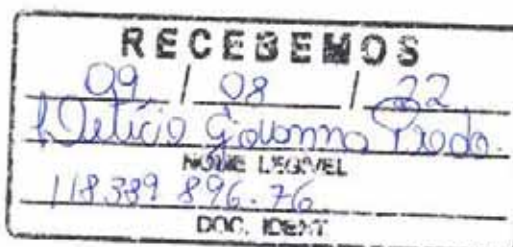 RECEBEMOS
09 / 08 / 22
Letícia Giovanna Prado.
NOME LEGÍVEL
118 389 896-76
DOC. IDENT.